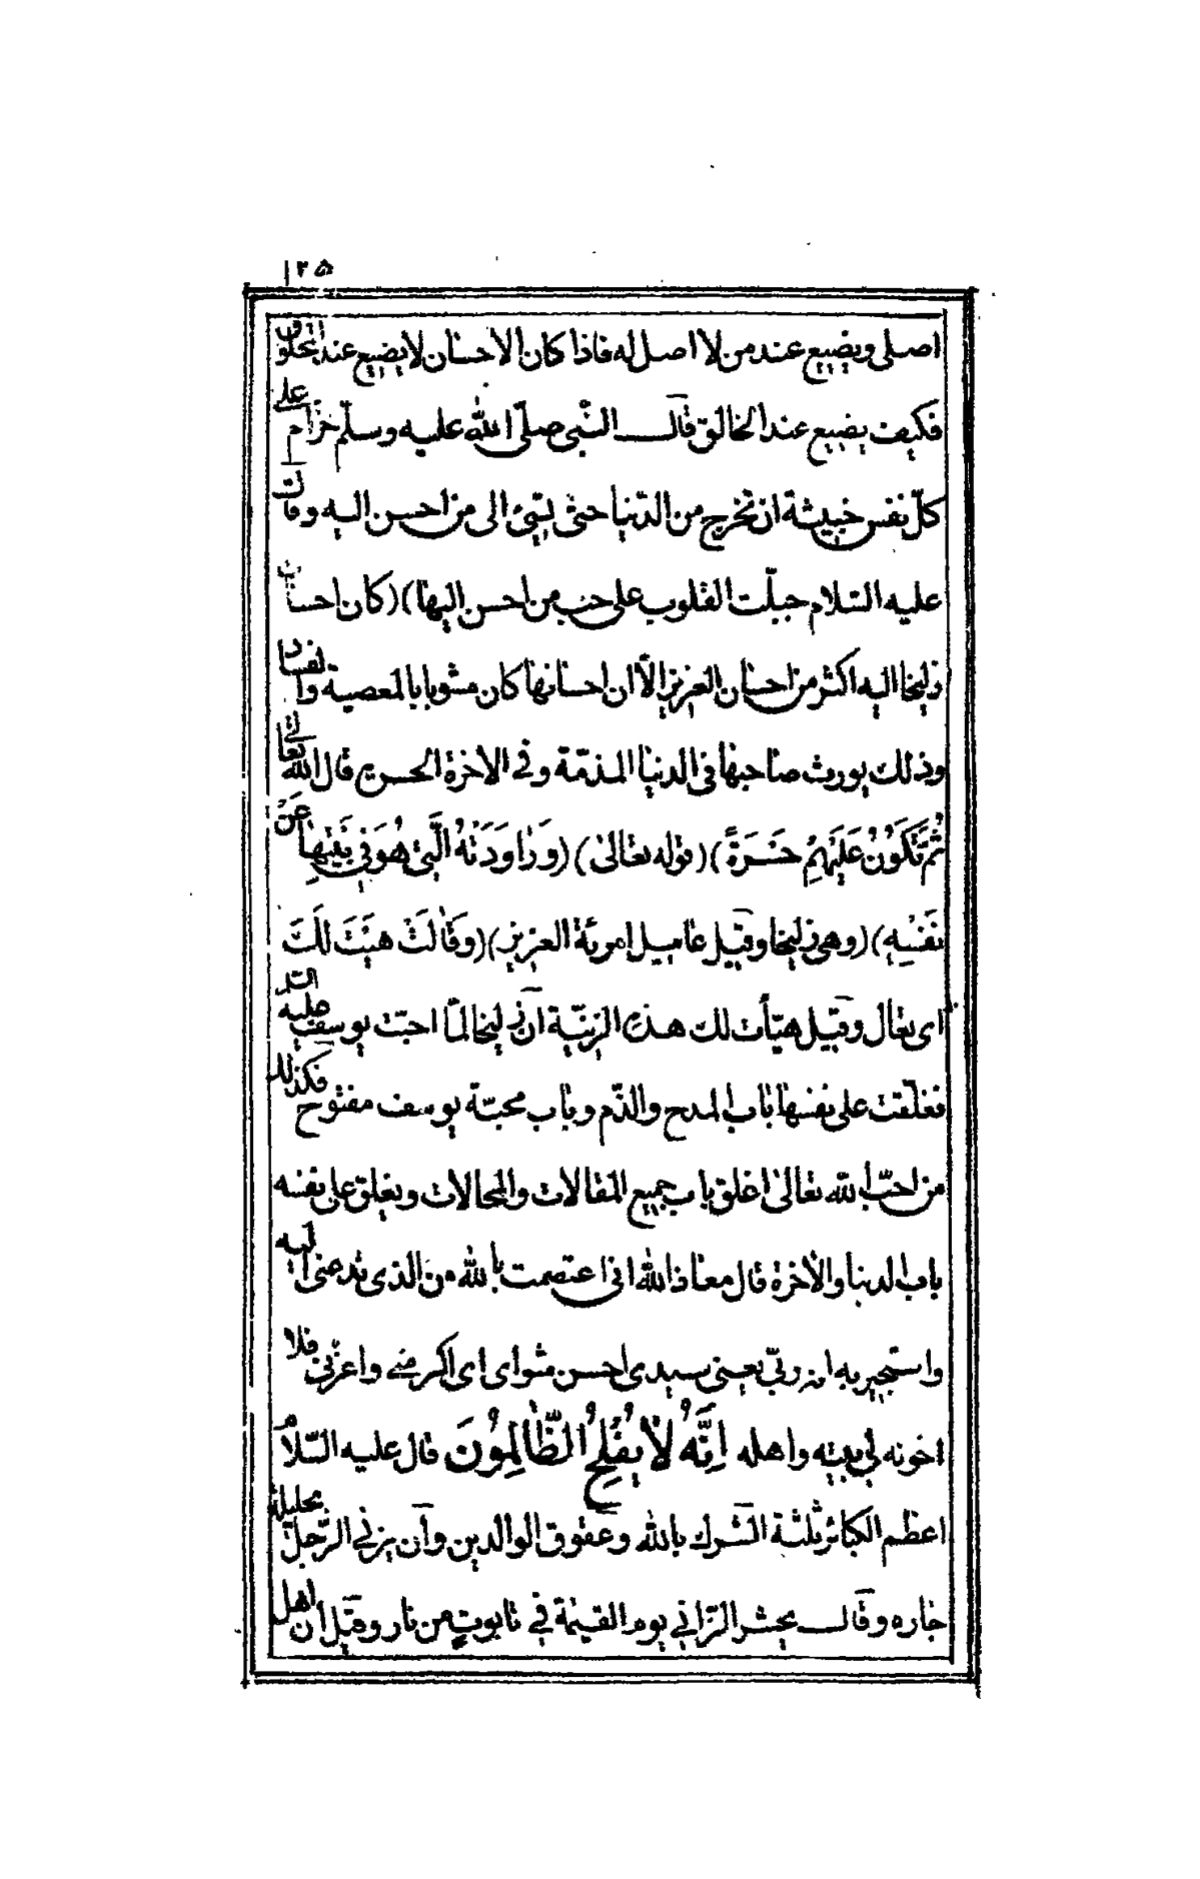 ١٢٥
اصلى ويضيع عند من لا اصل له فاذا كان الاحسان لا يضيع عند المخلوق
فكيف يضيع عند الخالق قال النبى صلّى الله عليه وسلّم حرام على
كلّ نفس خبيثة ان تخرج من الدّنيا حتى يسئ الى من احسن اليه وقال
عليه السّلام جبلّت القلوب على حب من احسن اليها) (كان احسان
زليخا اليه اكثر من احسان العزيز الّا ان احسانها كان مشوبا بالمعصية والفساد
وذلك يورث صاحبها فى الدنيا المذمّة وفى الاخرة الحسرة قال الله تعالى
ثُمَّ تَكُونُ عَلَيْهِمْ حَسْرَةً) (قوله تعالى) (وَرَاوَدَتْهُ الَّتِى هُوَ فِى بَيْتِهَا عَنْ
نَفْسِهِ) (وهى زليخا وقيل عاميل امرئة العزيز) (وَقَالَتْ هَيْتَ لَكَ
اى تعال وقيل هيّأت لك هذه الزينّة ان زليخا لمّا احبّت يوسف عليه السّلام
فغلّقت على نفسها باب المدح والذّم وباب محبّة يوسف مفتوح فكذلك
من احبّ الله تعالى اغلق باب جميع المقالات والمحالات ويغلق على نفسه
باب الدنيا والاخرة قال معاذ الله انى اعتصمت بالله من الذى تدعنى اليه
واستجير به انه ربّى يعنى سيدى احسن مثواى اى اكرمنى واعزّنى فلا
اخونه فى بيته واهله اِنَّهُ لَا يُفْلِحُ الظَّالِمُونَ قال عليه السّلام
اعظم الكبائر ثلثة الشرك بالله وعقوق الوالدين وان يزنى الرّجل بحليلة
جاره وقال يحشر الزّانى يوم القيمة فى تابوت من نار وقيل ان اهل